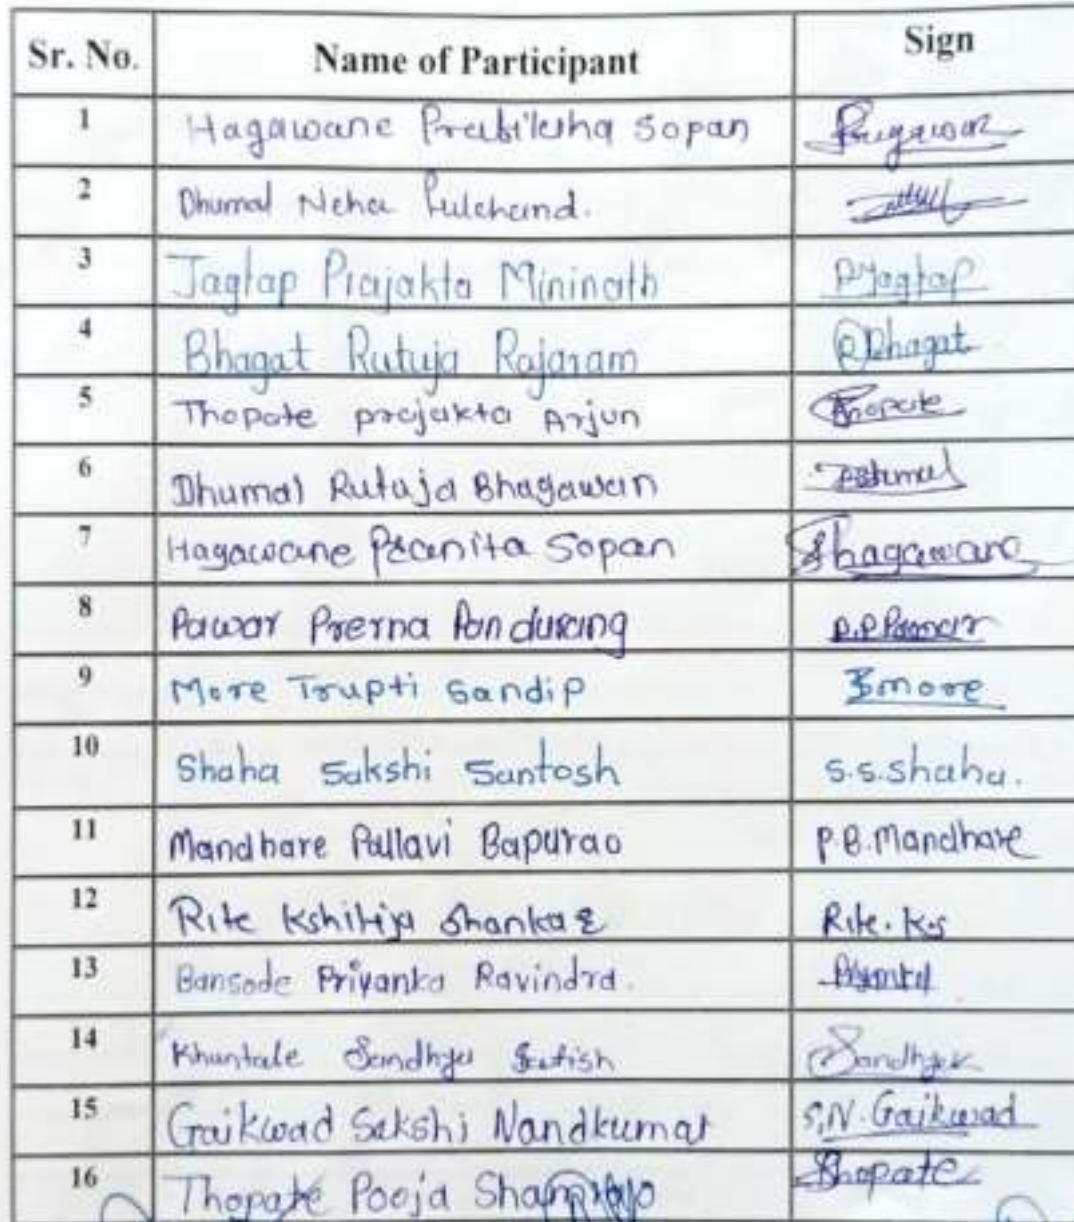 Sr. No. Name of Participant Sign
1 Hagawane Pratiksha Sopan
2 Dhumal Neha Fulchand.
3 Jagtap Prajakta Mininath P.Jagtap
4 Bhagat Rutuja Rajaram RBhagat
5 Thopate prajakta Arjun Thopate
6 Dhumal Rutuja Bhagawan
7 Hagawane Pranita Sopan Phagawane
8 Pawar Prerna Pandurang P.P.Pawar
9 More Trupti Sandip more
10 Shaha Sakshi Santosh S.S.Shaha.
11 Mandhare Pallavi Bapurao P.B.Mandhare
12 Rite Kshitija Shankar Rite. K.S
13 Bansode Priyanka Ravindra.
14 Khuntale Sandhya Satish Sandhya
15 Gaikwad Sakshi Nandkumar S.N. Gaikwad
16 Thopate Pooja Thopate